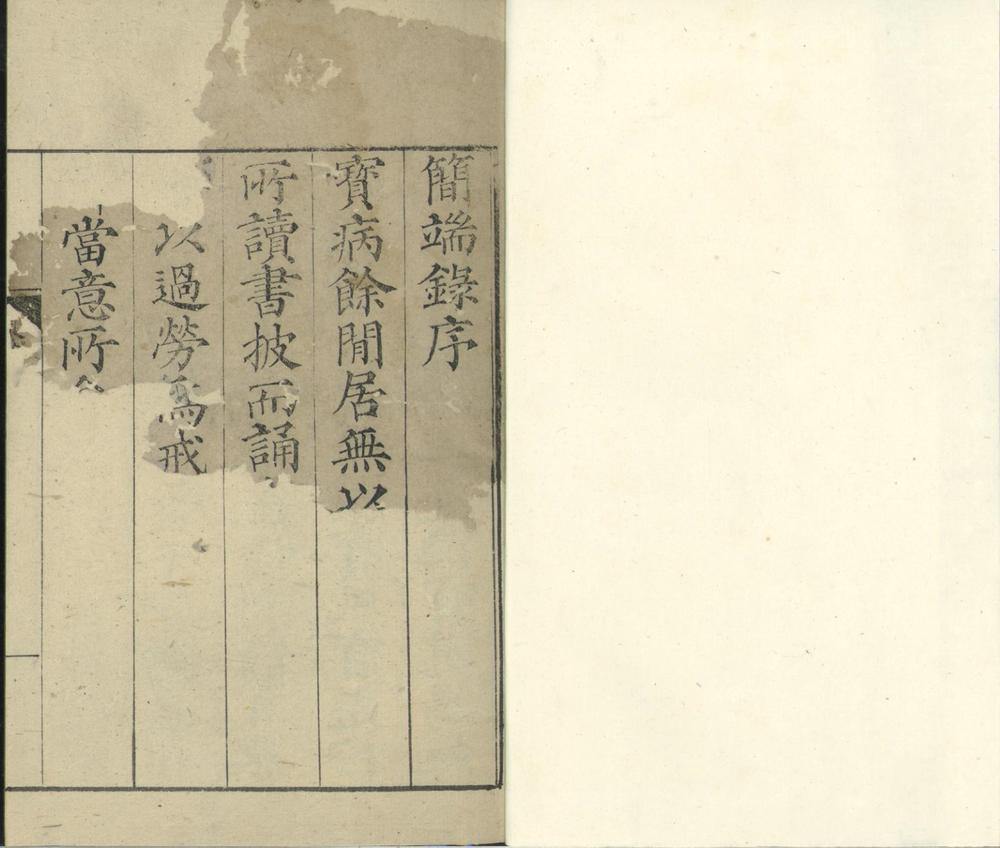 簡端錄序
寶病餘閒居無以
所讀書披而誦
以過勞為戒
當意所